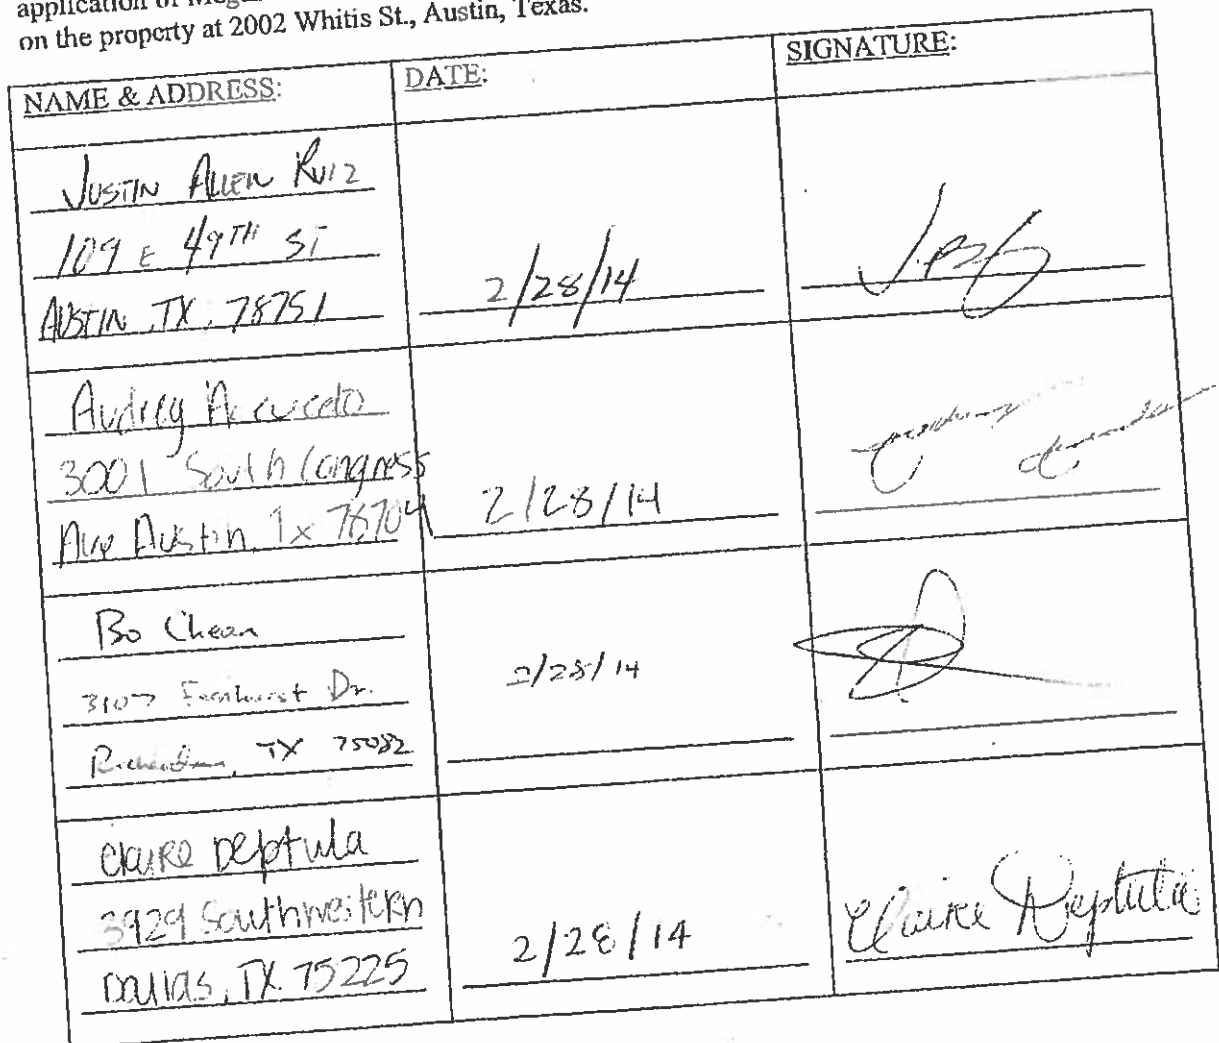 application of
on the property at 2002 Whitis St., Austin, Texas.
NAME & ADDRESS: DATE: SIGNATURE:
JUSTIN ALLEN RUIZ
109 E 49TH ST
AUSTIN, TX, 78751
2/28/14
Audrey Acevedo
3001 South Congress
Ave Austin, Tx 78704
2/28/14
Bo Chean
3107 Fernhurst Dr.
Richardson, TX 75082
2/28/14
Claire Deptula
3929 Southwestern
Dallas, TX 75225
2/28/14
Claire Deptula